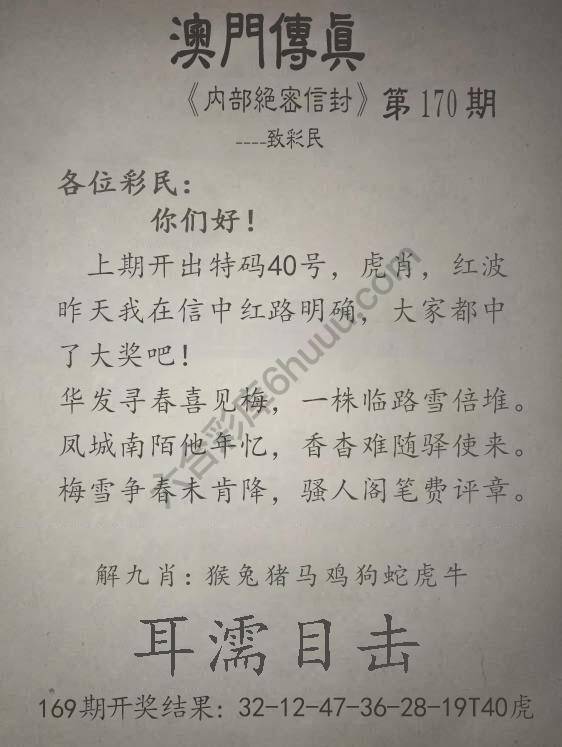 澳門傳真
《内部絕密信封》第170期
----致彩民
各位彩民：
你们好！
上期开出特码40号，虎肖，红波
昨天我在信中红路明确，大家都中
了大奖吧！
华发寻春喜见梅，一株临路雪倍堆。
凤城南陌他年忆，香杳难随驿使来。
梅雪争春未肯降，骚人阁笔费评章。
六合彩库6huuu.com
解九肖：猴兔猪马鸡狗蛇虎牛
耳濡目击
169期开奖结果：32-12-47-36-28-19T40虎